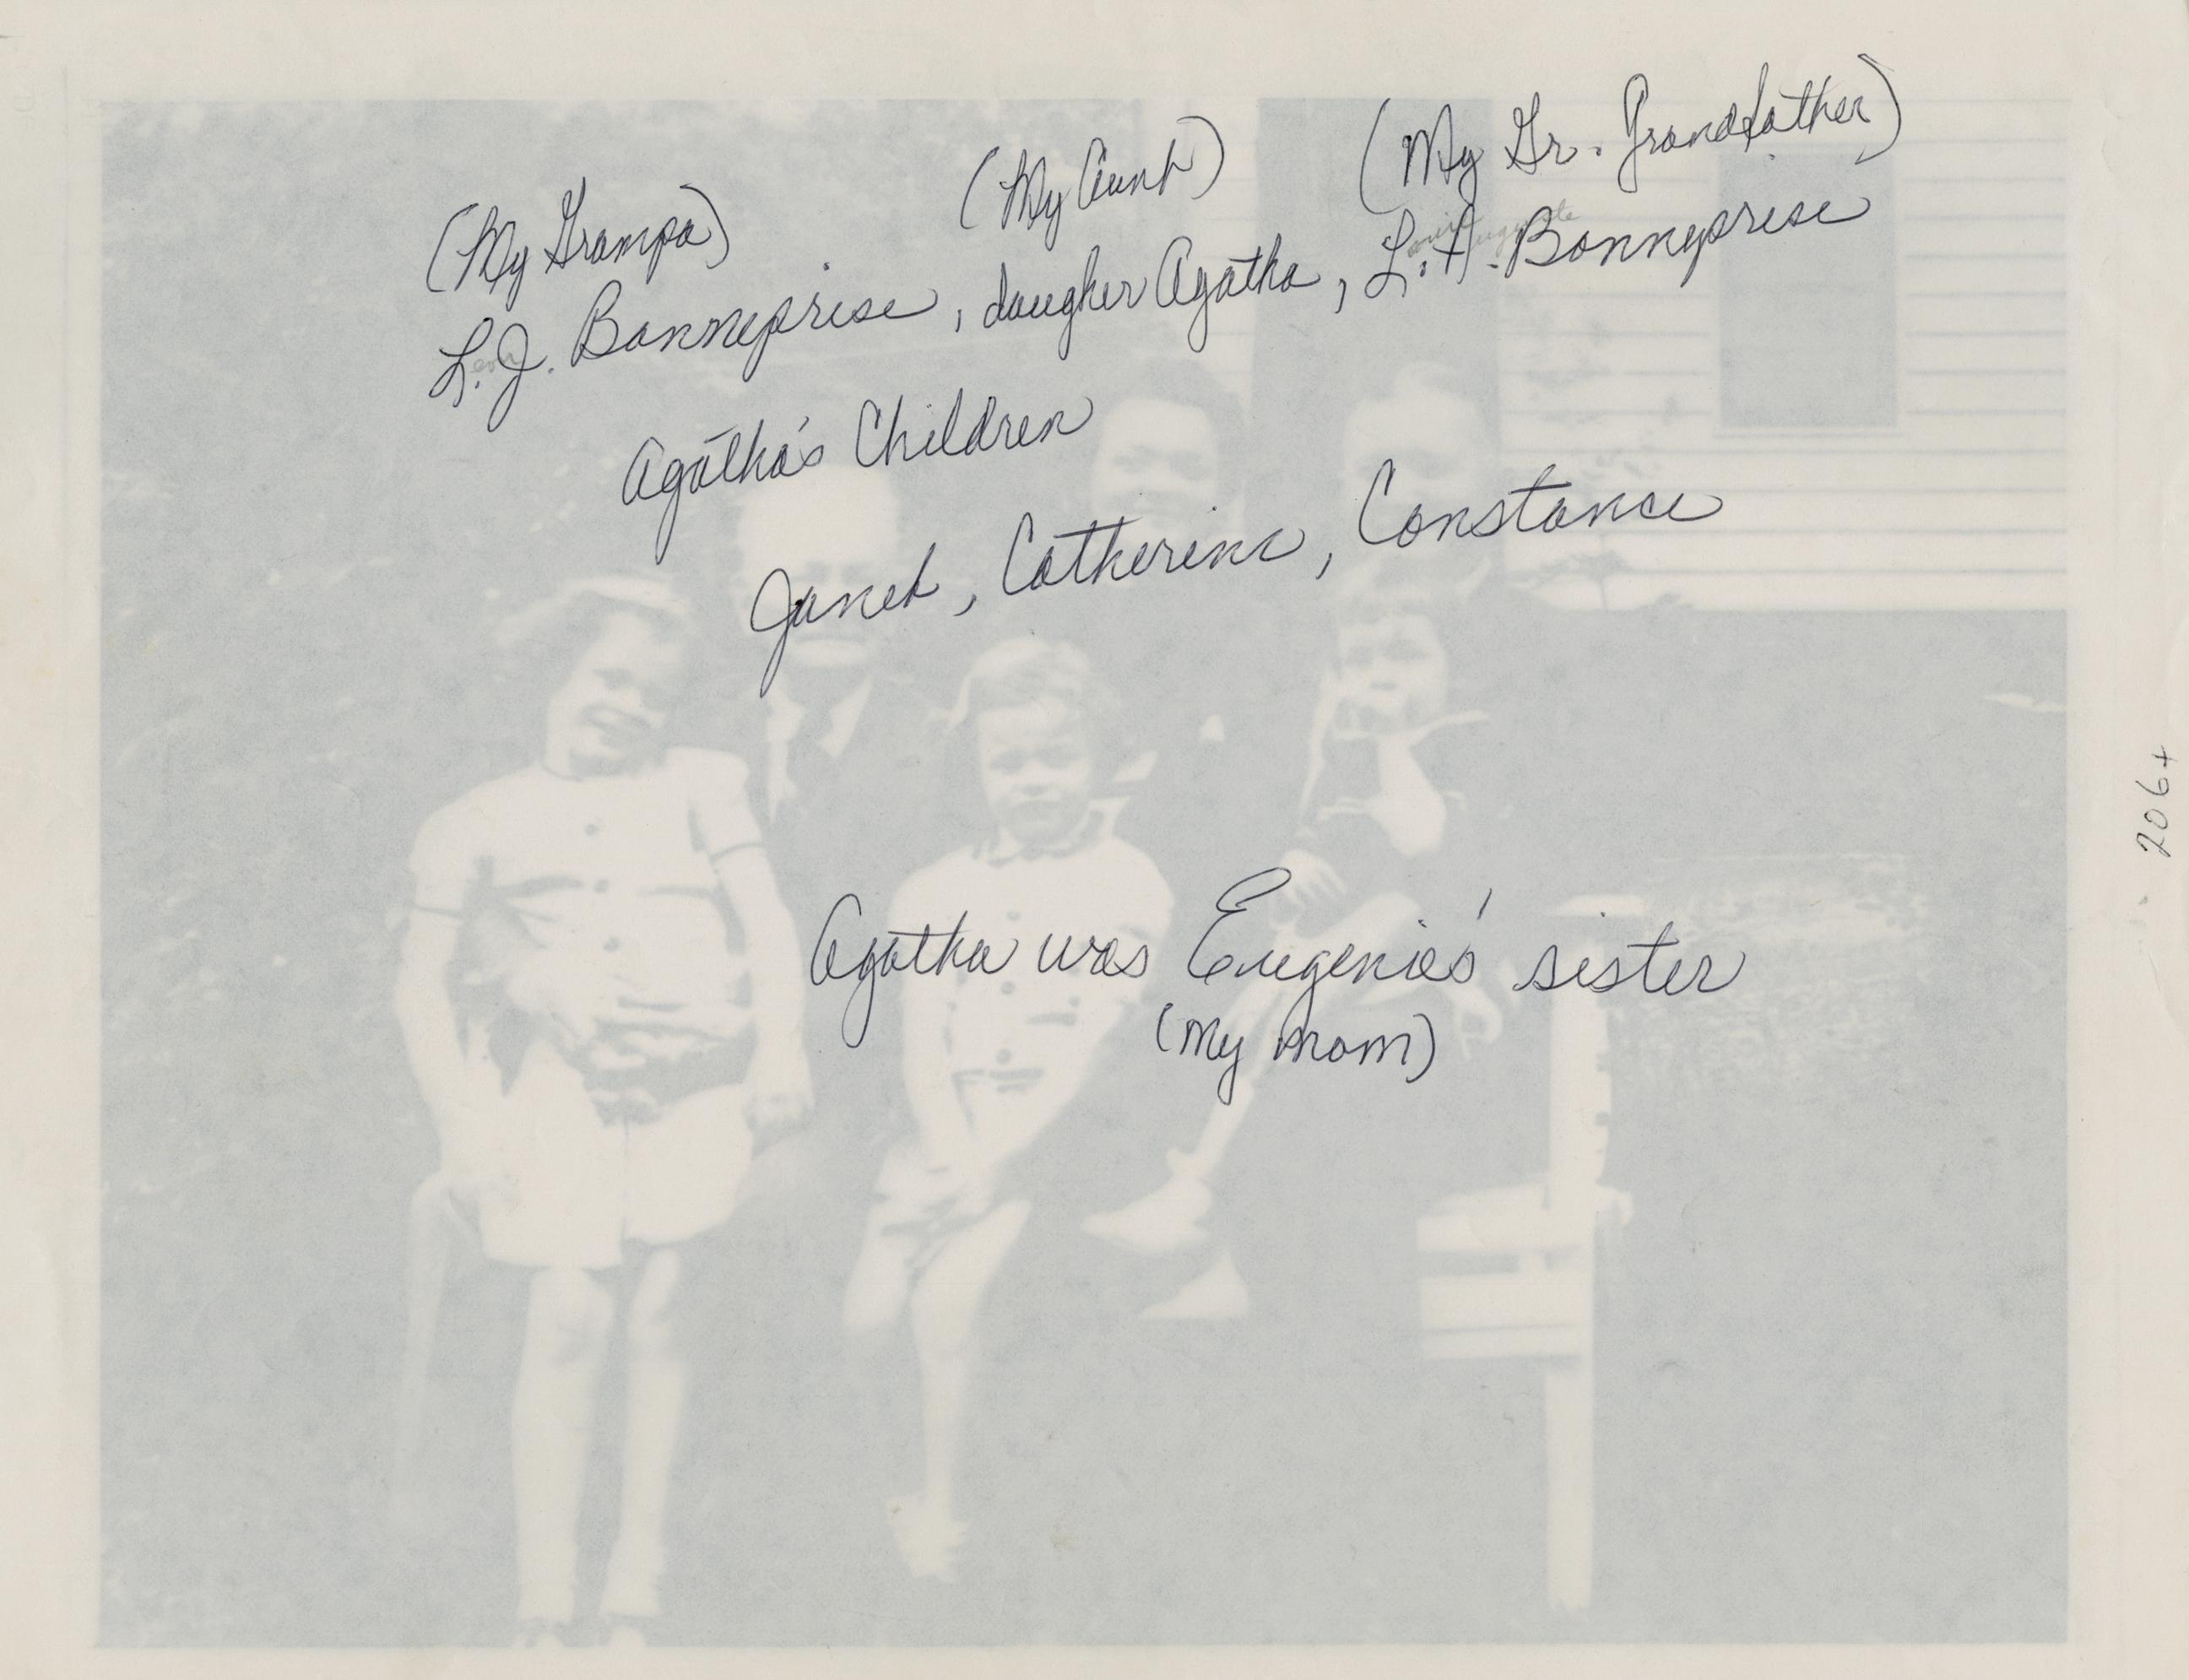 (My Grampa) (My Aunt) (My Gr. Grandfather)
L.J. Bonneprise, daugher Agatha, L.A. Bonneprise
Leon Louis Auguste
Agatha's Children
Janet, Catherine, Constance
Agatha was Eugenie's sister
(My Mom)
206+